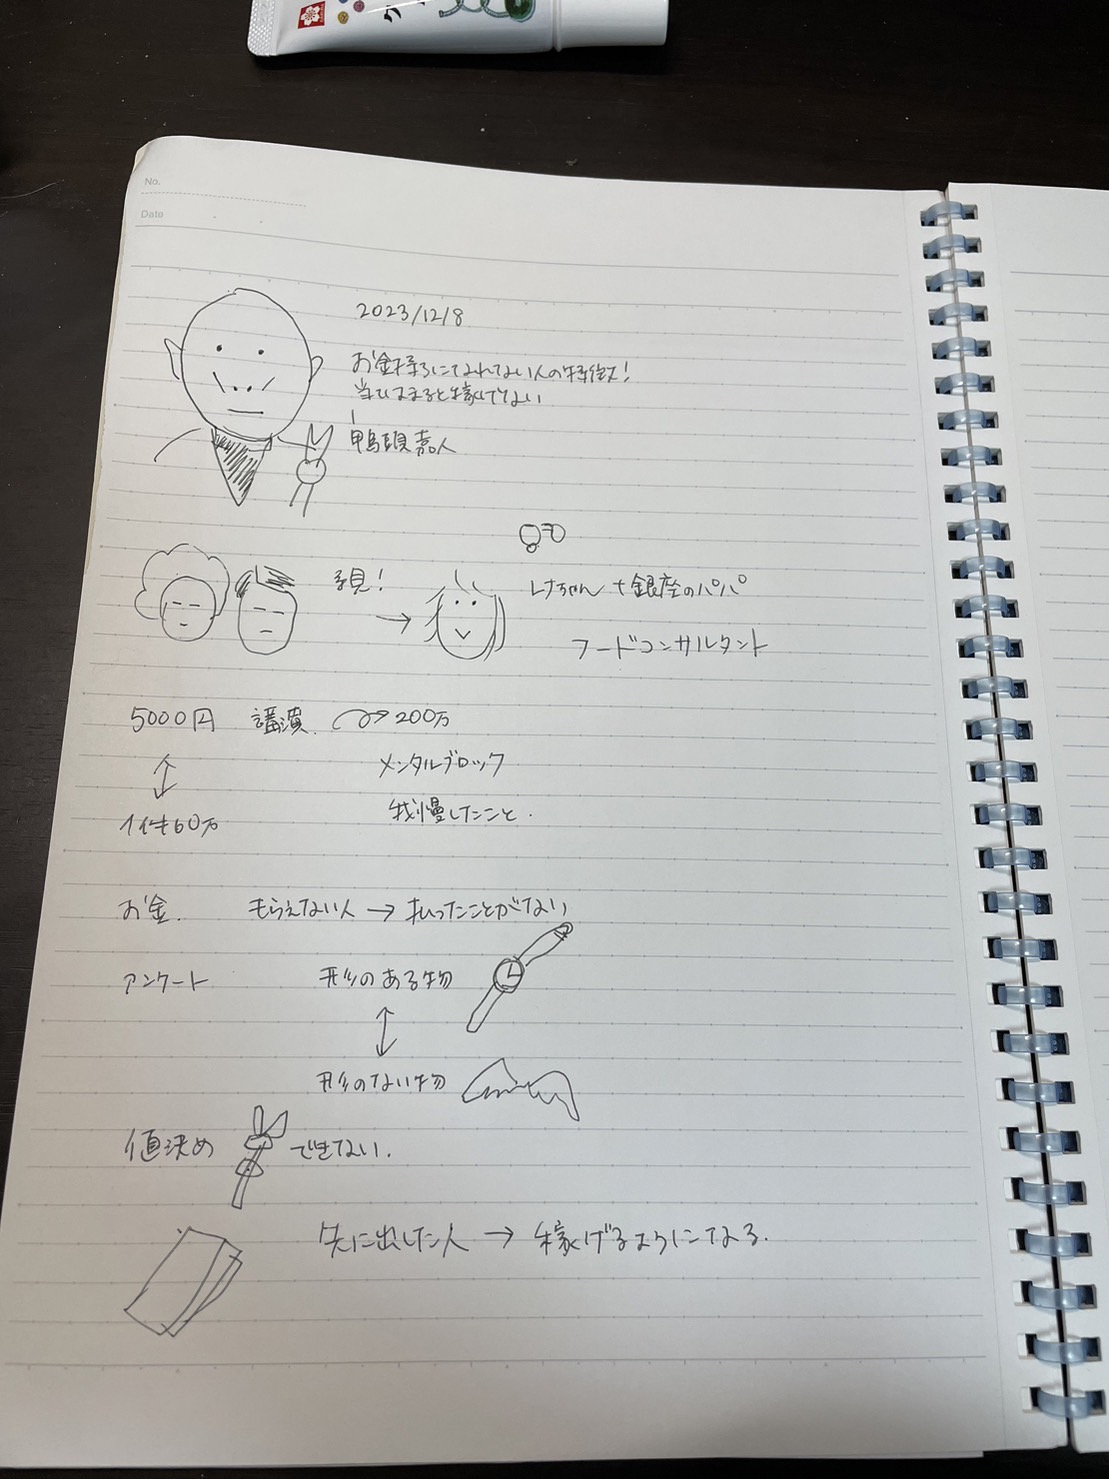 No.
Date
2023/12/8
お金持ちになれてない人の特徴!
当てはまると稼げてない
鴨頭嘉人
親!
レナちゃん + 銀座のパパ
フードコンサルタント
5000円 講演 200万
メンタルブロック
我慢したこと.
1件60万
お金. もらえない人 → 払ったことがない
アンケート 形のある物
形のない物
値決め できてない.
先に出した人 → 稼げるようになる.